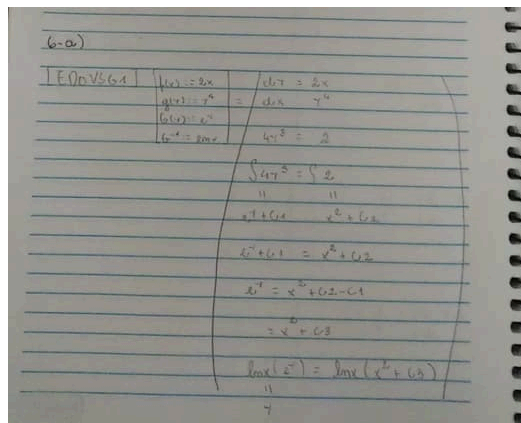 6-a)
EDOVSG1
f(x) := 2x
g(y) := y⁴
G(y) := eʸ
G⁻¹ := lnx
=
dy = 2x
dx y⁴
4y³ = 2
∫4y³ = ∫2
" "
eʸ + C1 x² + C2
eʸ + C1 = x² + C2
eʸ = x² + C2 - C1
= x² + C3
lnx(eʸ) = lnx(x² + C3)
"
y